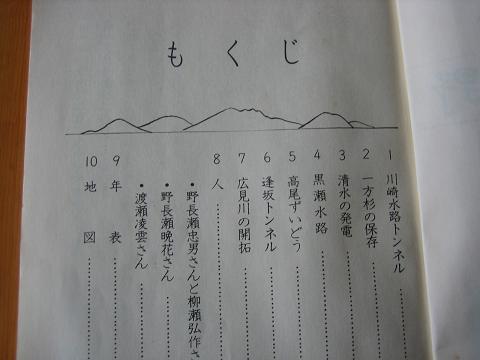 もくじ
1 川崎水路トンネル
2 一方杉の保存
3 清水の発電
4 黒瀬水路
5 高尾ずいどう
6 逢坂トンネル
7 広見川の開拓
8 人
・野長瀬忠男さんと柳瀬弘作さ
・野長瀬晩花さん
・渡瀬凌雲さん
9 年表
10 地図